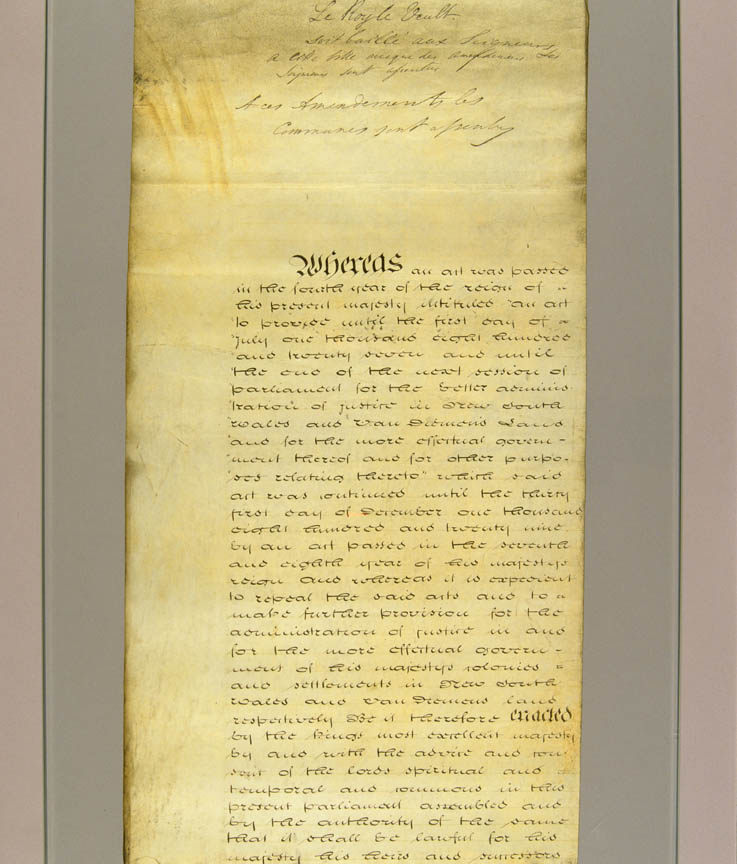 Le Roy le Veult.
soit baillé aux Seigneurs
a cette bille avecque des amendemens les
Seigneurs sont assentus
A ces Amendements les
Communes sont assentus
Whereas an act was passed
in the fourth year of the reign of =
his present majesty intituled "an act
"to provide until the first day of =
"july one thousand eight hundred
"and twenty seven and until
"the end of the next session of
"parliament for the better adminis-
"tration of justice in New South
"Wales and Van Diemen's Land
"and for the more effectual govern -
"ment thereof and for other purpo-
"ses relating thereto" which said
act was continued until the thirty
first day of december one thousand
eight hundred and twenty nine
by an act passed in the seventh
and eighth year of his majestys
reign And whereas it is expedient
to repeal the said acts and to =
make further provision for the
administration of justice in and
for the more effectual govern -
ment of his majestys colonies =
and settlements in New South
Wales and Van Diemens land
respectively Be it therefore enacted
by the kings most excellent majesty
by and with the advice and con-
sent of the lords spiritual and =
temporal and commons in this
present parliament assembled and
by the authority of the same
that it shall be lawful for his
majesty his heirs and successors